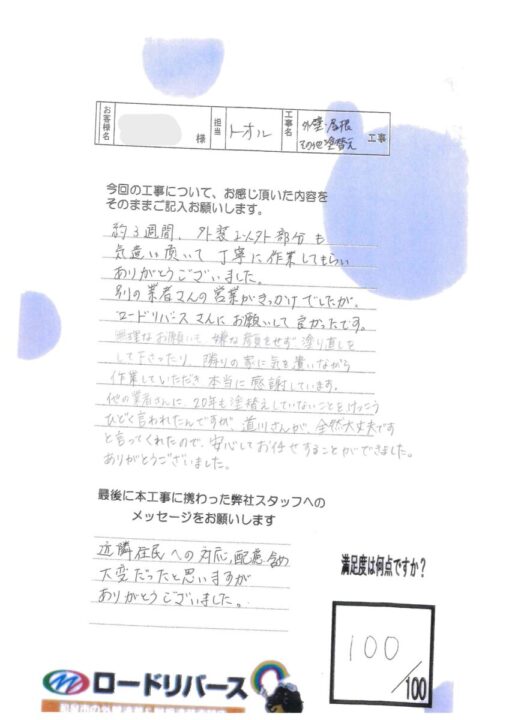 お客様名 様 担当 トオル 工事名 外壁・屋根
その他塗替え 工事
今回の工事について、お感じ頂いた内容を
そのままご記入お願いします。
約3週間、外装以外部分も
気遣い頂いて 丁寧に作業してもらい
ありがとうございました。
別の業者さんの営業がきっかけでしたが、
ロードリバースさんにお願いして良かったです。
無理なお願いも、嫌な顔をせず塗り直しを
して下さったり、隣りの家に気を遣いながら
作業していただき本当に感謝しています。
他の業者さんに、20年も塗替えしていないことをけっこう
ひどく言われたんですが、道川さんが、全然大丈夫です
と言ってくれたので、安心してお任せすることができました。
ありがとうございました。
最後に本工事に携わった弊社スタッフへの
メッセージをお願いします
近隣住民への対応、配慮含め
大変だったと思いますが
ありがとうございました。
満足度は何点ですか?
100
/100
ロードリバース